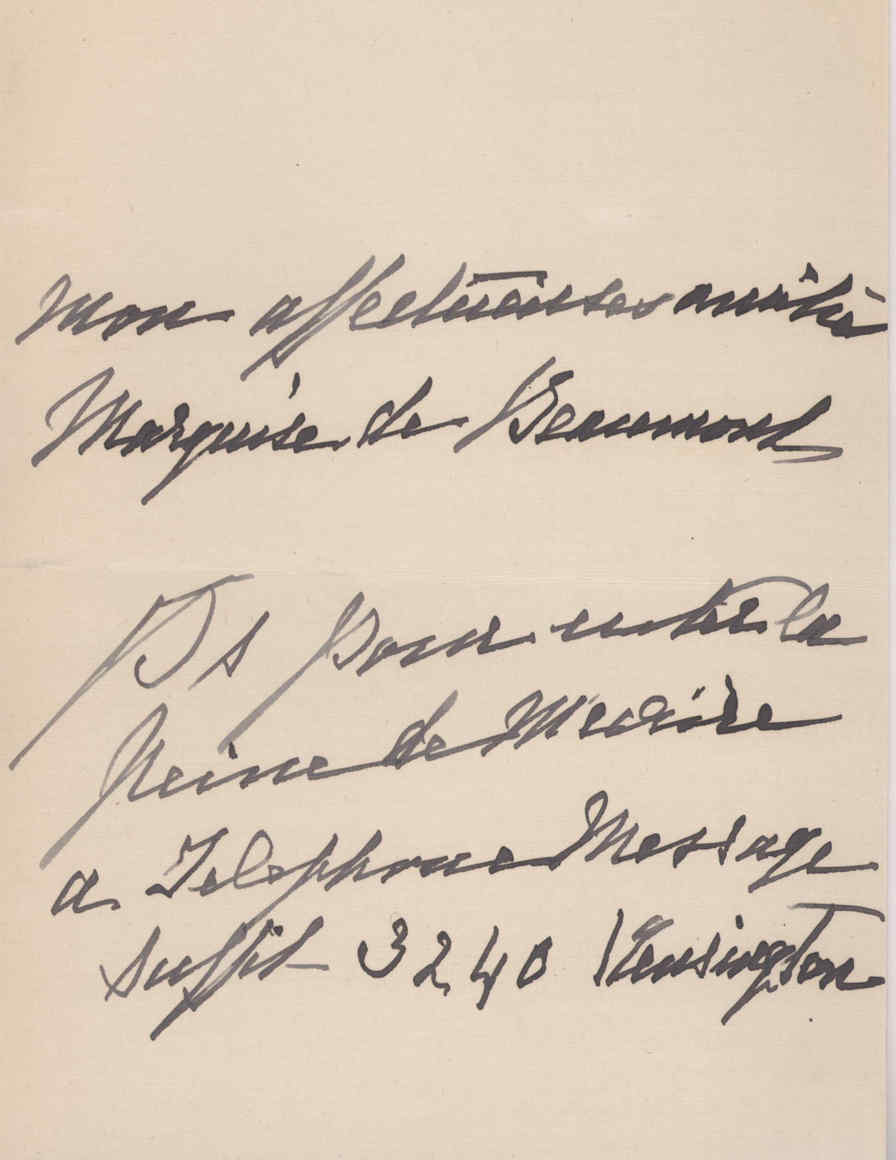 mon affectueuses amitié
Marquise de Beaumont
Ps Pour la
Reine de
a Telephone Message
suffit 3240 Kensington